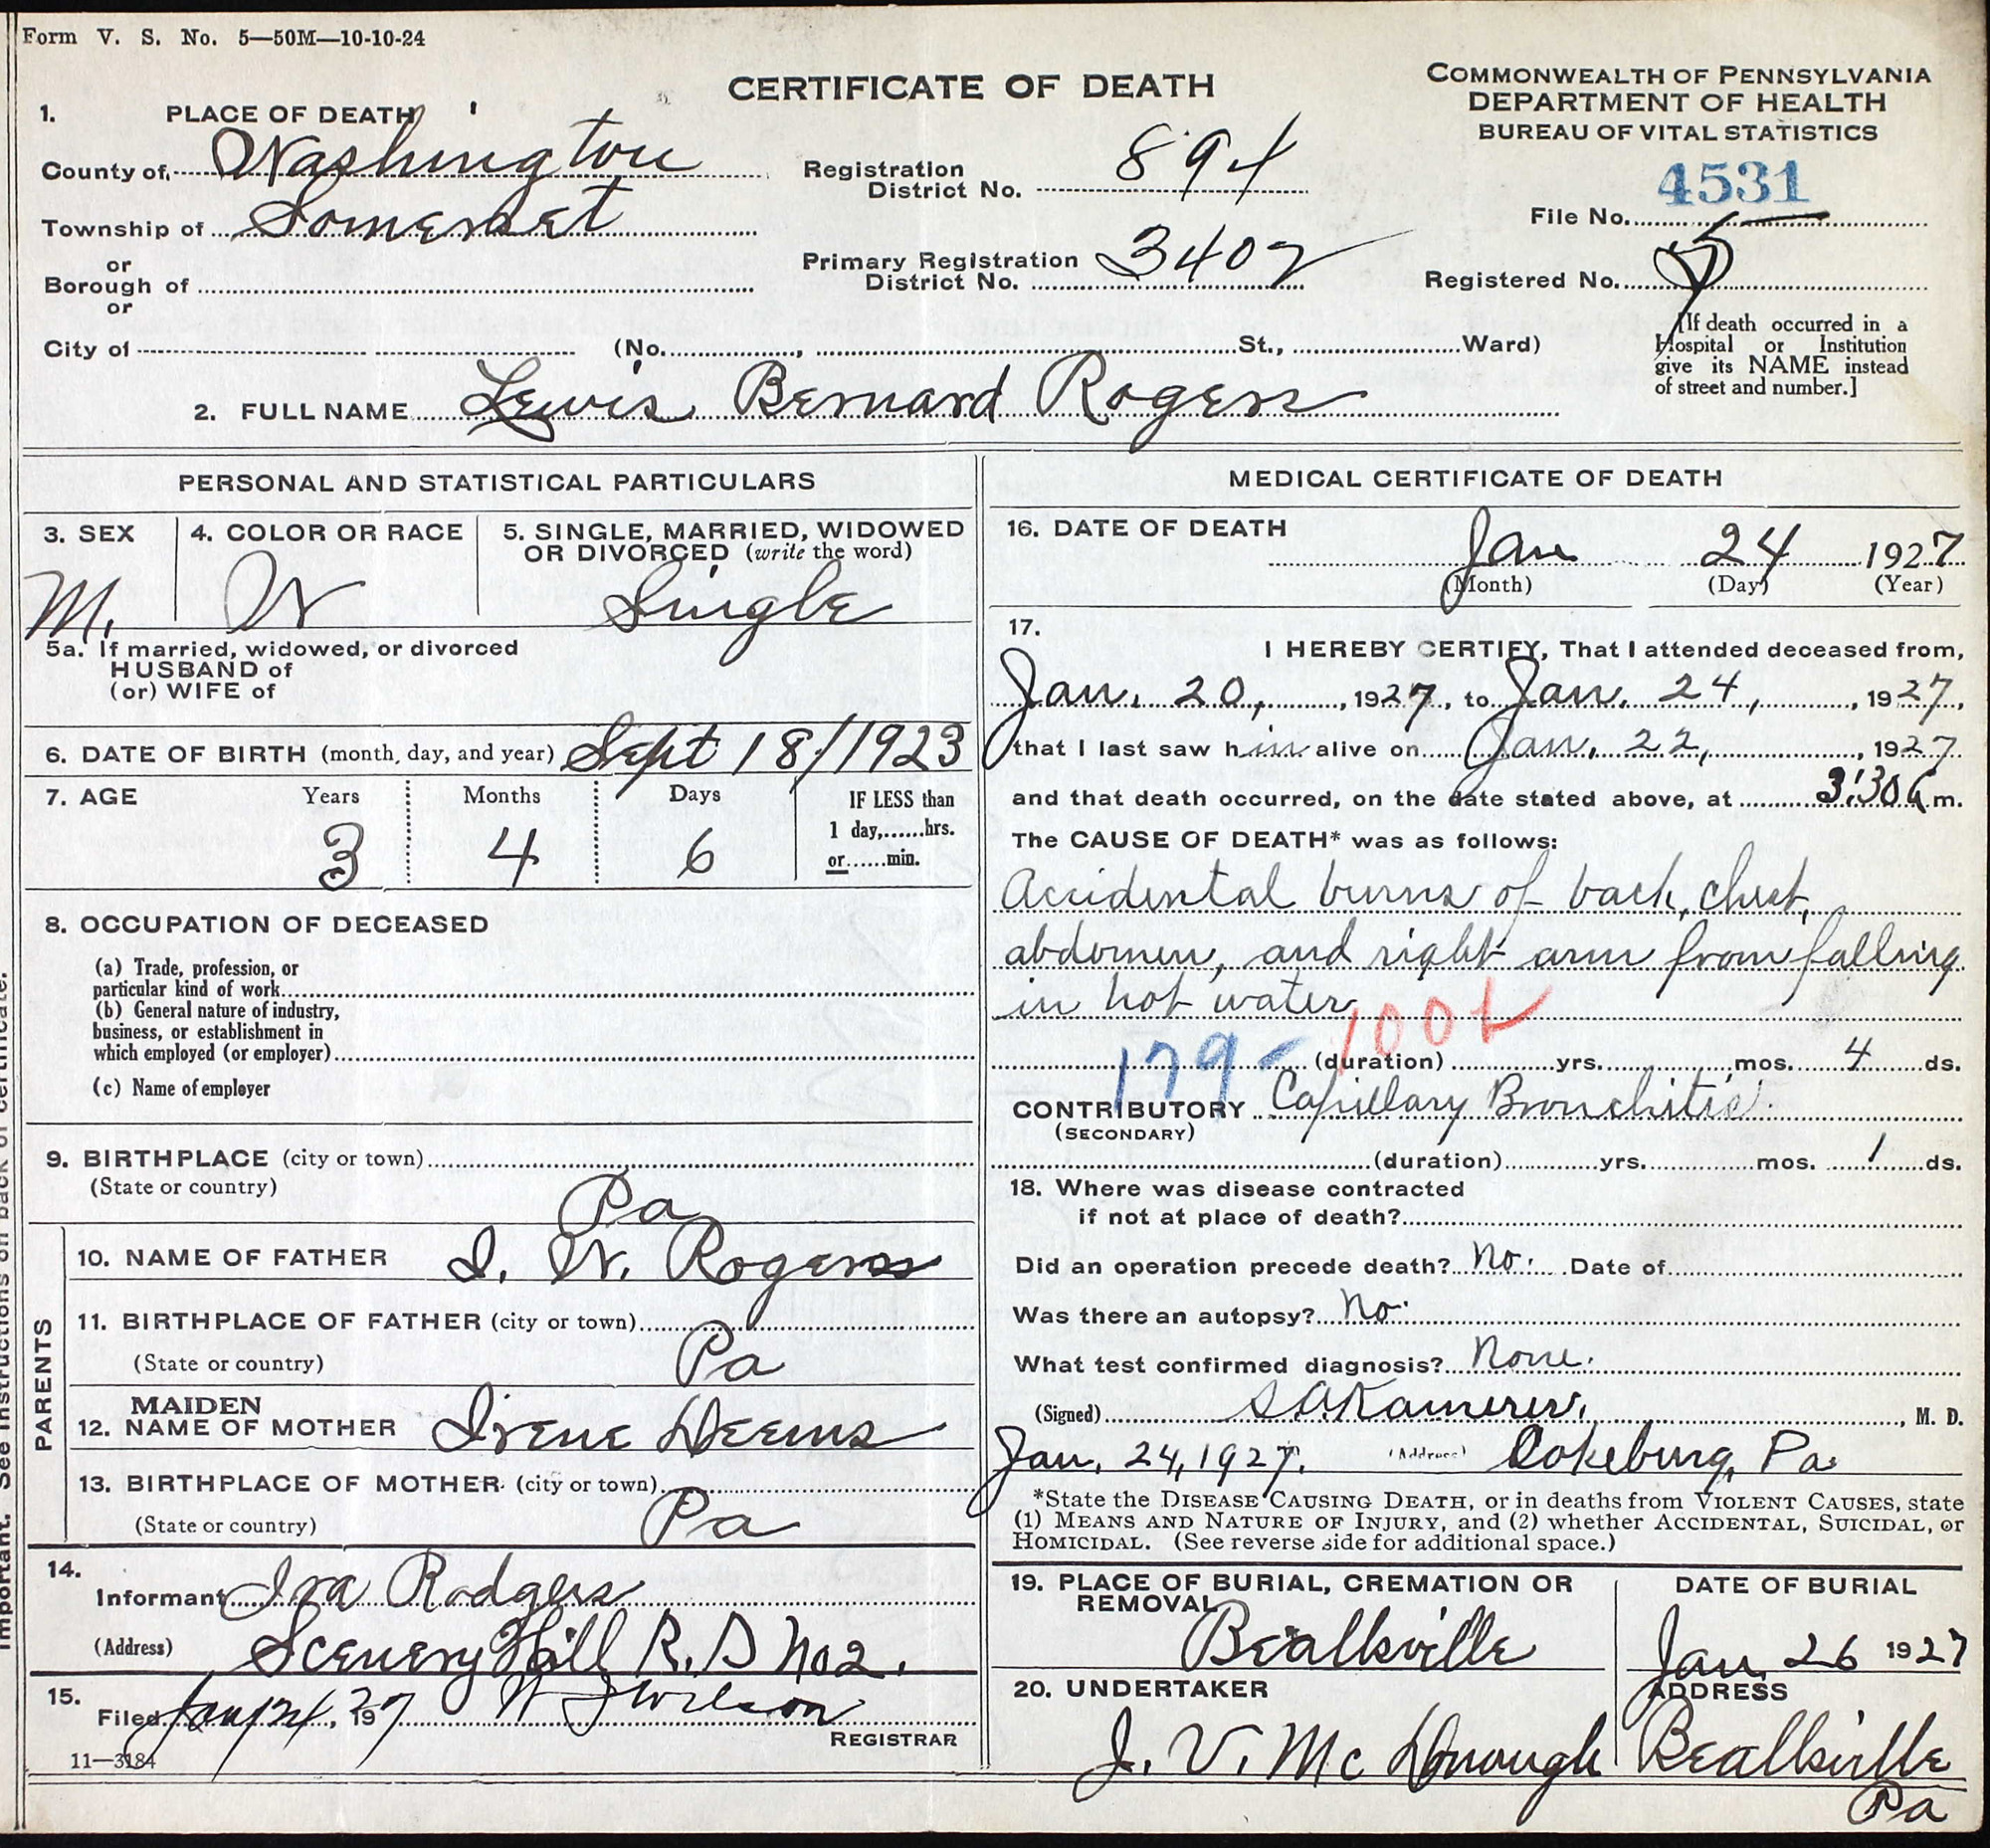 Form V. S. No. 5—50M—10-10-24
CERTIFICATE OF DEATH
COMMONWEALTH OF PENNSYLVANIA
DEPARTMENT OF HEALTH
BUREAU OF VITAL STATISTICS
1. PLACE OF DEATH
County of Washington
Township of Somerset
or
Borough of
or
City of (No. , St., Ward)
Registration District No. 894
Primary Registration District No. 3402
4531
File No.
Registered No. 5
[If death occurred in a
Hospital or Institution
give its NAME instead
of street and number.]
2. FULL NAME Lewis Bernard Rogers
PERSONAL AND STATISTICAL PARTICULARS
3. SEX
M.
4. COLOR OR RACE
W
5. SINGLE, MARRIED, WIDOWED
OR DIVORCED (write the word)
Single
5a. If married, widowed, or divorced
HUSBAND of
(or) WIFE of
6. DATE OF BIRTH (month, day, and year) Sept 18/1923
7. AGE Years Months Days IF LESS than
1 day,......hrs.
or......min.
3 4 6
8. OCCUPATION OF DECEASED
(a) Trade, profession, or
particular kind of work
(b) General nature of industry,
business, or establishment in
which employed (or employer)
(c) Name of employer
9. BIRTHPLACE (city or town)
(State or country)
Pa
PARENTS
10. NAME OF FATHER I. W. Rogers
11. BIRTHPLACE OF FATHER (city or town)
(State or country) Pa
MAIDEN
12. NAME OF MOTHER Irene Deems
13. BIRTHPLACE OF MOTHER (city or town)
(State or country) Pa
14.
Informant Ira Rodgers
(Address) Scenery Hill R. D No 2.
15.
Filed Jan 24, 1927 W J Wilson
REGISTRAR
11—3184
MEDICAL CERTIFICATE OF DEATH
16. DATE OF DEATH
Jan 24 1927
(Month) (Day) (Year)
17.
I HEREBY CERTIFY, That I attended deceased from,
Jan. 20, , 1927, to Jan. 24, , 1927,
that I last saw him alive on Jan. 22, , 1927
and that death occurred, on the date stated above, at 3:30 a m.
The CAUSE OF DEATH* was as follows:
Accidental burns of back, chest,
abdomen, and right arm from falling
in hot water
179 (duration) yrs. mos. 4 ds.
CONTRIBUTORY Capillary Bronchitis.
(SECONDARY)
(duration) yrs. mos. 1 ds.
18. Where was disease contracted
if not at place of death?
Did an operation precede death? No. Date of
Was there an autopsy? No.
What test confirmed diagnosis? None.
(Signed) S A Kamerer, M. D.
Jan. 24, 1927. (Address) Cokeburg, Pa.
*State the DISEASE CAUSING DEATH, or in deaths from VIOLENT CAUSES, state
(1) MEANS AND NATURE OF INJURY, and (2) whether ACCIDENTAL, SUICIDAL, or
HOMICIDAL. (See reverse side for additional space.)
19. PLACE OF BURIAL, CREMATION OR
REMOVAL
Beallsville
DATE OF BURIAL
Jan. 26 1927
20. UNDERTAKER
J. V. Mc Donough
ADDRESS
Beallsville
Pa
Important. See instructions on back of certificate.